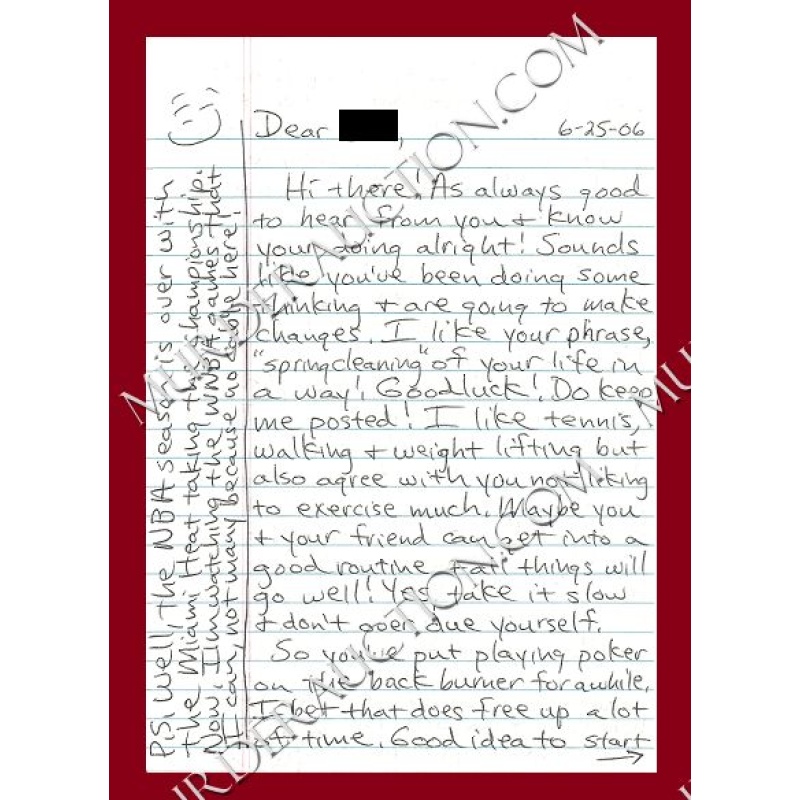 Dear , 6-25-06
Hi there! As always good
to hear from you + know
your doing alright! Sounds
like you've been doing some
thinking + are going to make
changes. I like your phrase,
"springcleaning" of your life in
a way! Goodluck! Do keep
me posted! I like tennis,
walking + weight lifting but
also agree with you not liking
to exercise much. Maybe you
+ your friend can get into a
good routine + all things will
go well! Yes, take it slow
+ don't over due yourself.
So you've put playing poker
on the back burner for awhile,
I bet that does free up a lot
of time. Good idea to start
P.S. Well, the NBA season is over with
the Miami Heat taking the championship.
Now, I'm watching the WNBA games that
I can, not many because no cable here!
MURDERAUCTION.COM
MURDERAUCTION.COM